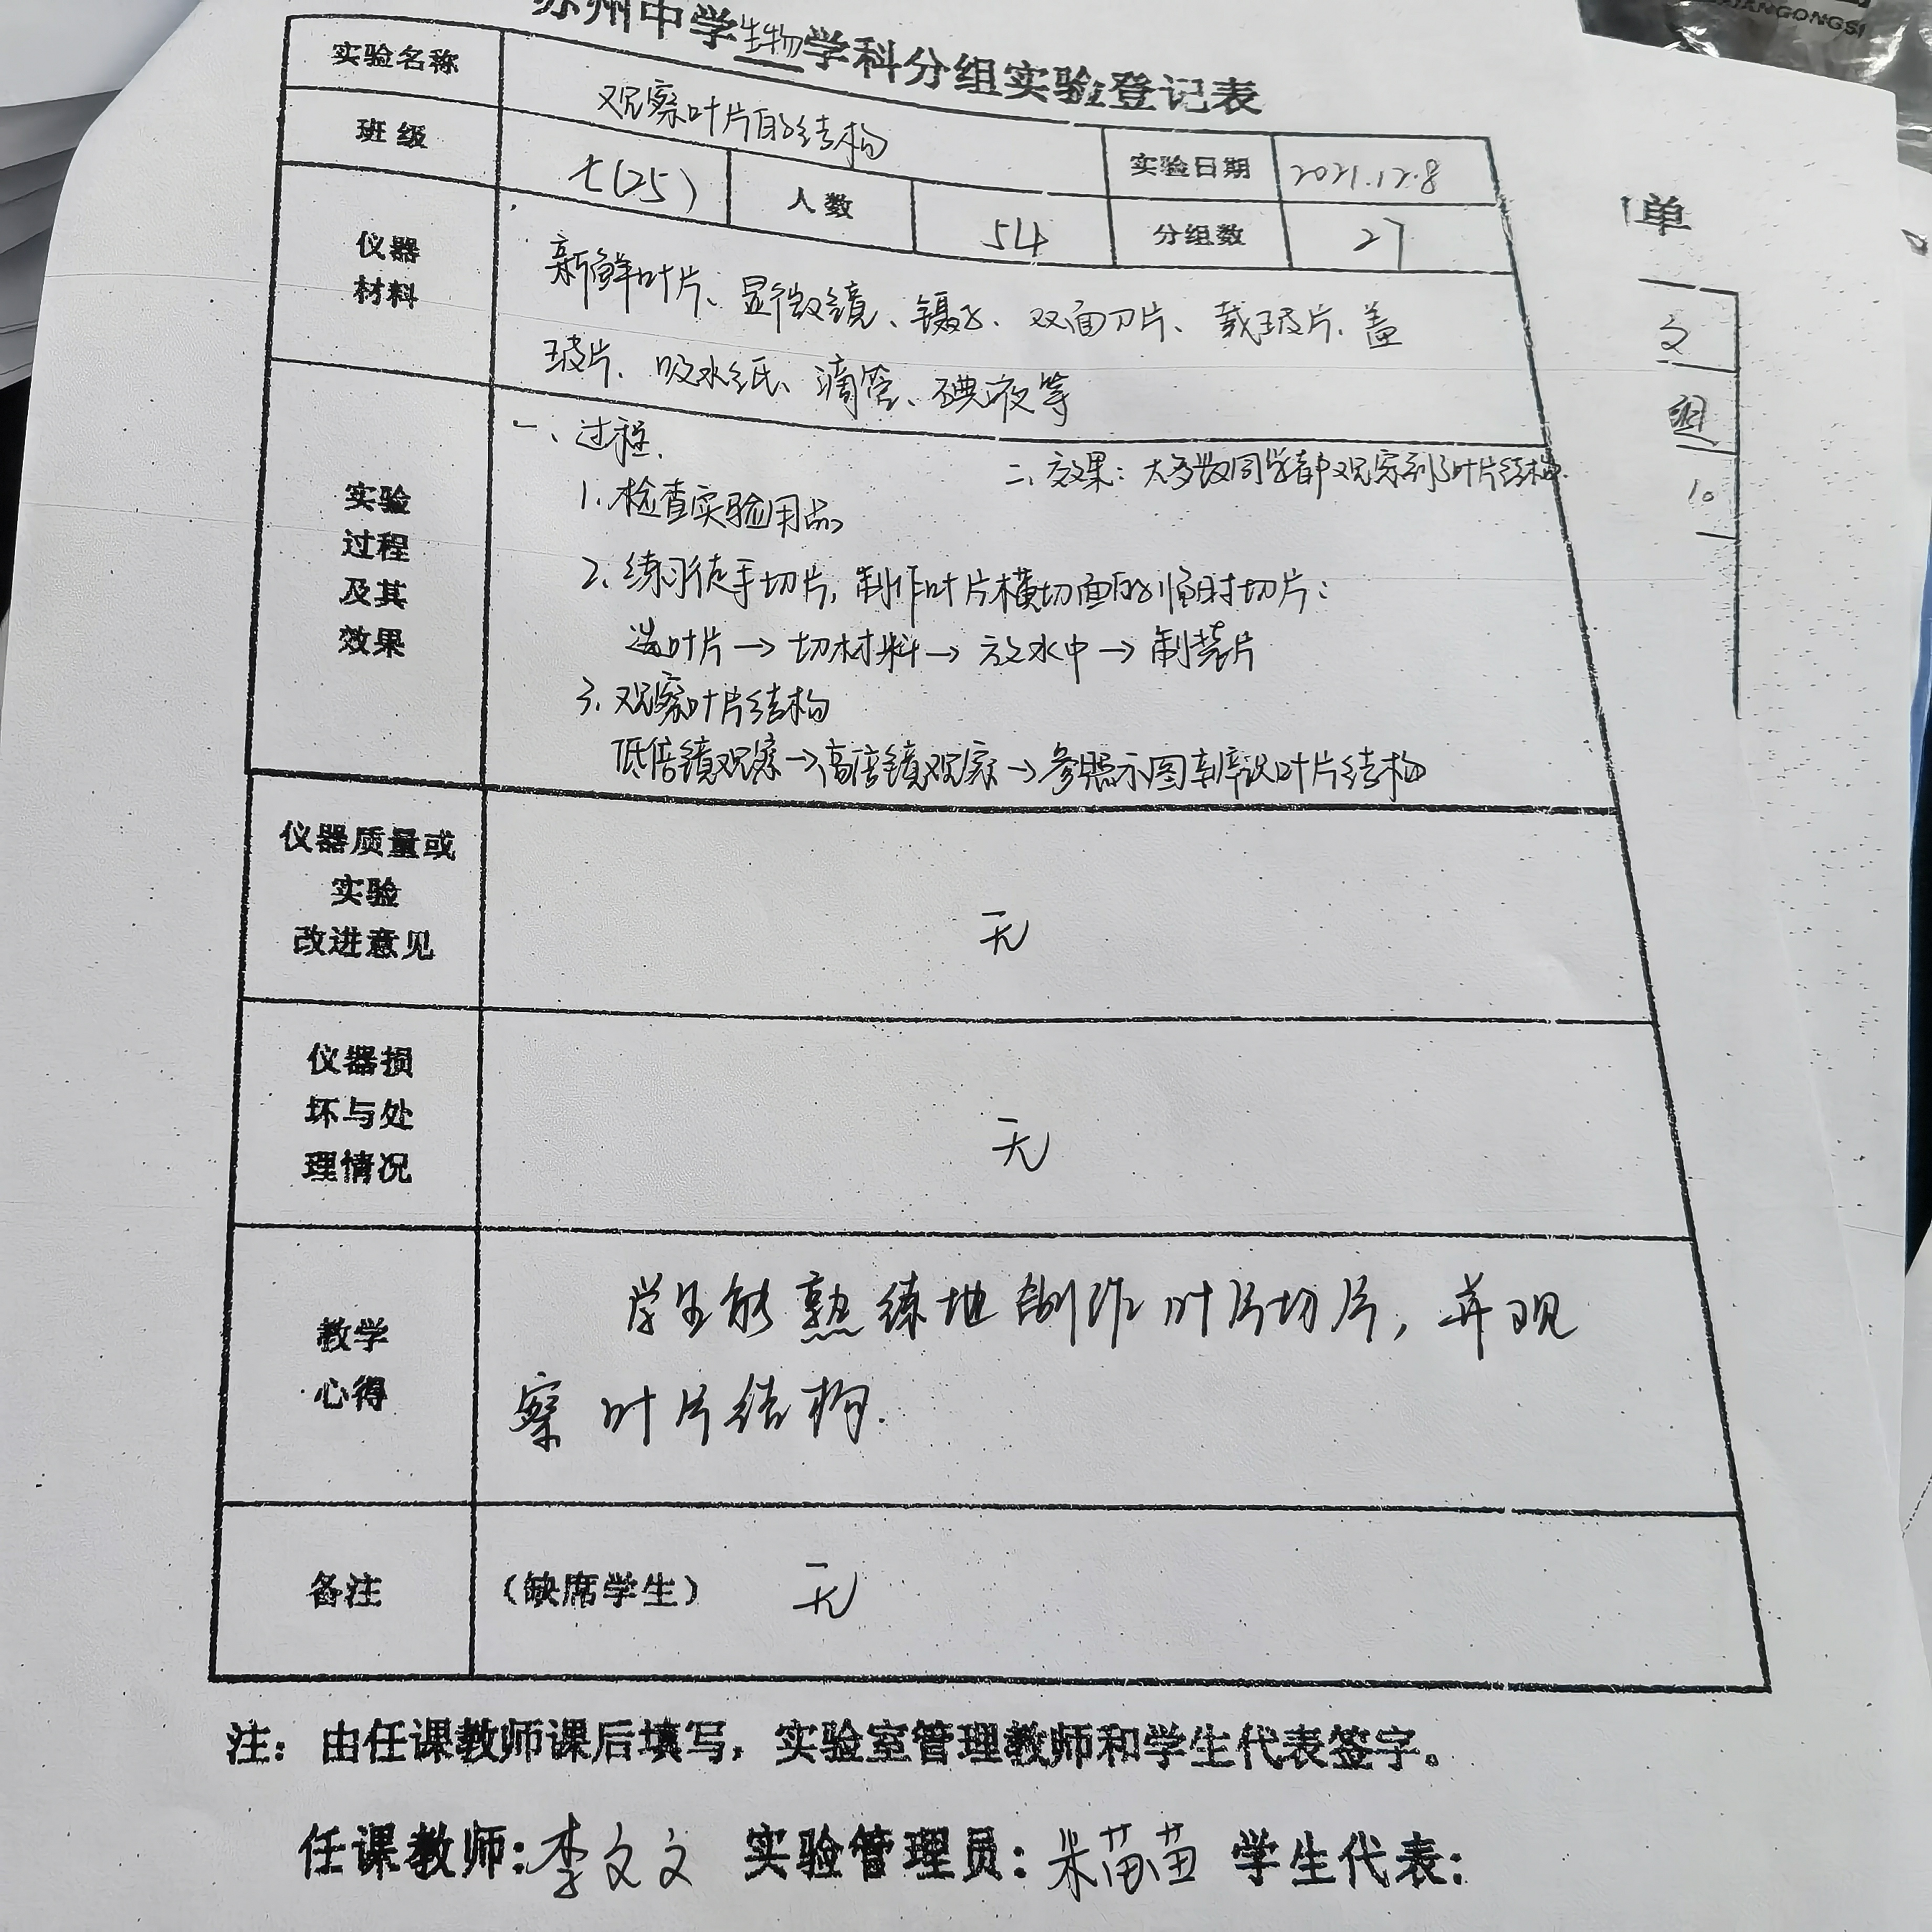 苏州中学生物学科分组实验登记表
实验名称 观察叶片的结构 实验日期 2021.12.8
班级 七(25) 人数 54 分组数 27
仪器
材料
新鲜叶片、显微镜、镊子、双面刀片、载玻片、盖
玻片、吸水纸、滴管、碘液等
实验
过程
及其
效果
一、过程.
二、效果：大多数同学都观察到了叶片结构.
1.检查实验用品
2.练习徒手切片,制作叶片横切面的临时切片：
选叶片→切材料→放水中→制装片
3.观察叶片结构
低倍镜观察→高倍镜观察→参照示图辨识叶片结构
仪器质量或
实验
改进意见
无
仪器损
坏与处
理情况
无
教学
心得
学生能熟练地制作叶片切片,并观
察叶片结构.
备注 （缺席学生） 无
注：由任课教师课后填写，实验室管理教师和学生代表签字。
任课教师:李文文 实验管理员:朱苗苗 学生代表:
单
文
组
10